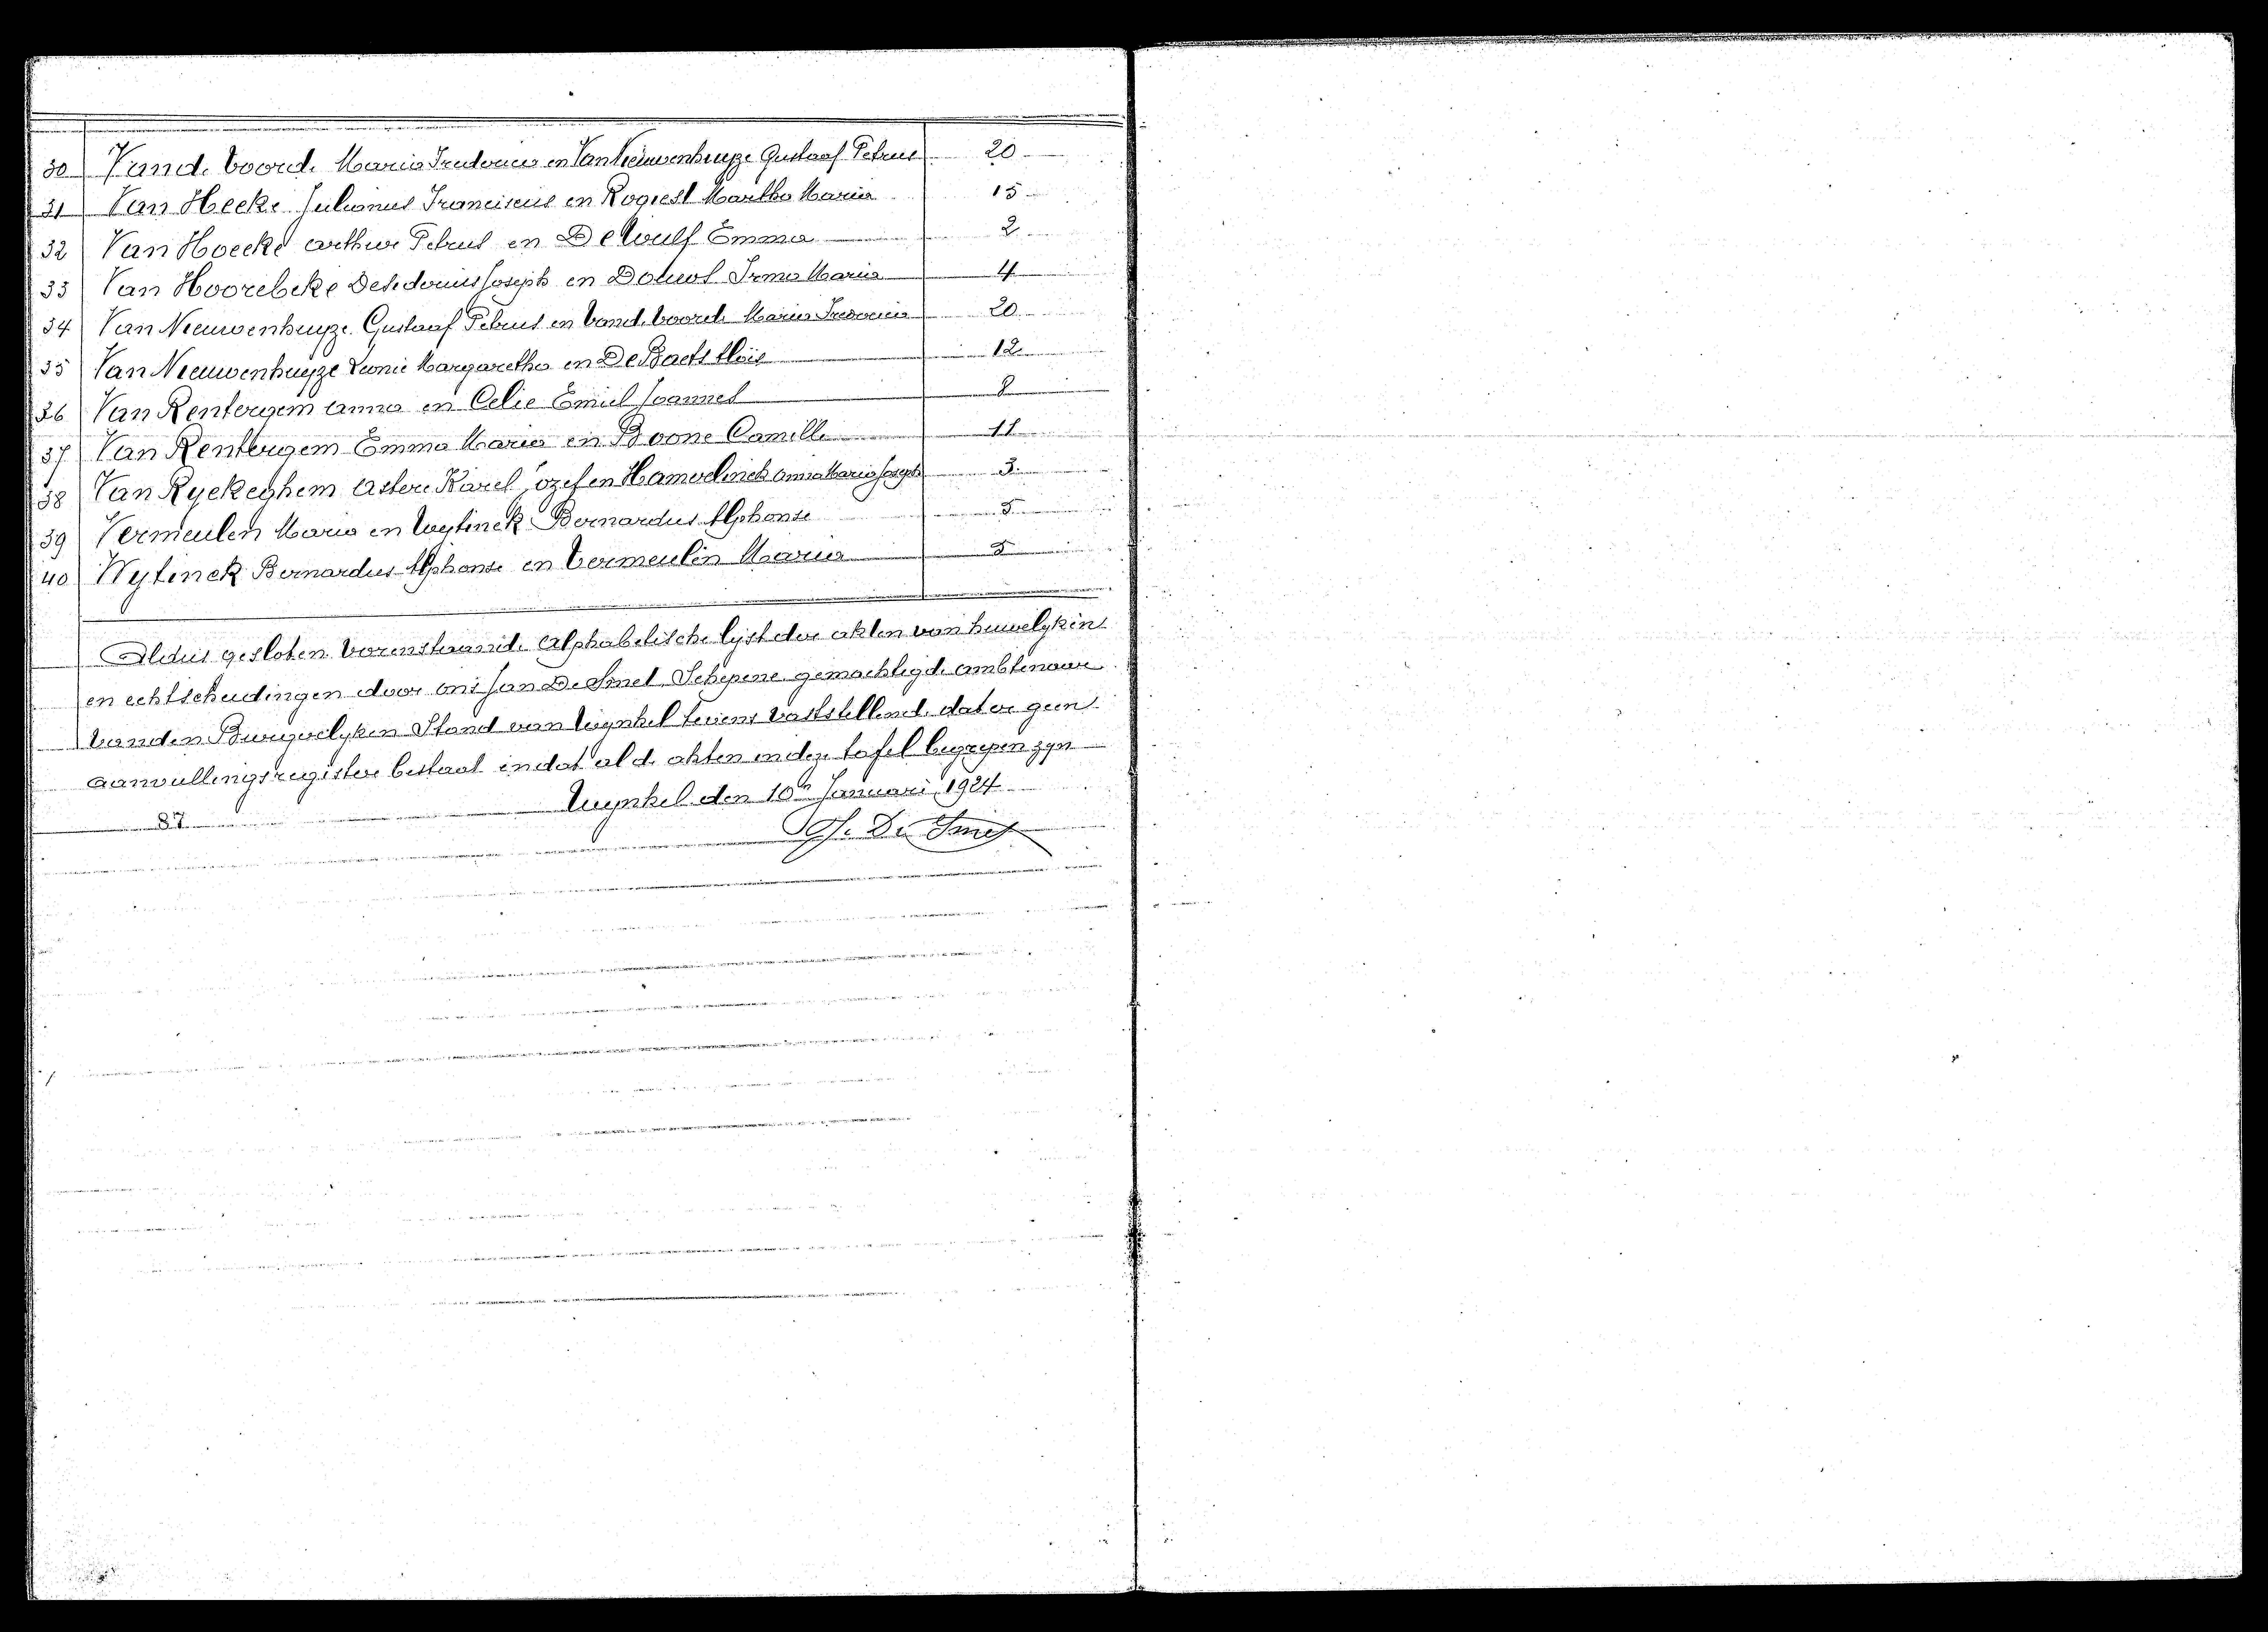 30 Vande Voorde Maria Ludovica en Van Nieuwenhuyze Gustaaf Petrus 20
31 Van Hecke Julianus Franciscus en Rogiest Martha Maria 15
32 Van Hoecke Arthur Petrus en De Wulf Emma 2
33 Van Hoorebeke Desiderius Joseph en Irma Maria 4
34 Van Nieuwenhuyze Gustaaf Petrus en Vande Voorde Maria Ludovica 20
35 Van Nieuwenhuyze Leonie Margaretha en De Baets Aloïs 12
36 Van Rentergem Anna en Celie Emiel Joannes 8
37 Van Rentergem Emma Maria en Boone Camille 11
38 Van Ryckeghem Astere Karel Jozef en Hamerlinck Anna Maria Joseph 3
39 Vermeulen Maria en Wytinck Bernardus Alphonse 5
40 Wytinck Bernardus Alphonse en Vermeulen Maria 5
Aldus gesloten vorenstaande Alphabetische lyst der akten van huwelyken
en echtscheidingen door ons Jan De Smet, Schepene gemachtigde ambtenaar
van den Burgerlyken Stand van Wynkel tevens vaststellende dat er geen
aanvullingsregister bestaat en dat al de akten in deze tafel begrepen zyn
Wynkel den 10n Januari 1924
87
J. De Smet